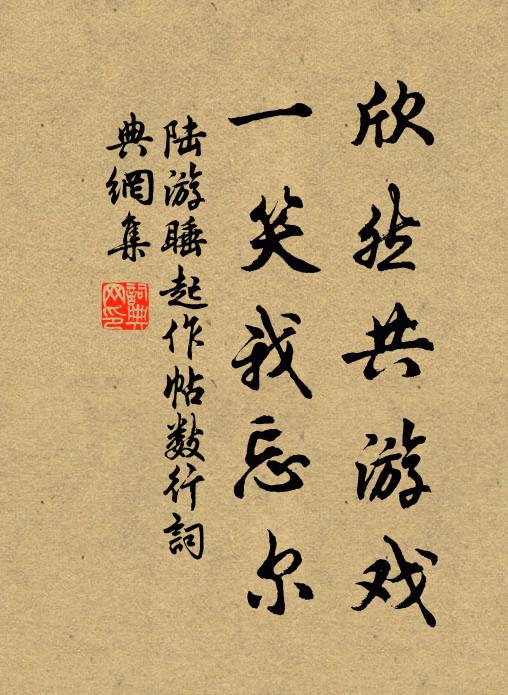 欣然共游戏
一笑我忘尔
陆游睡起作帖数行詞
典網集
詞典网印